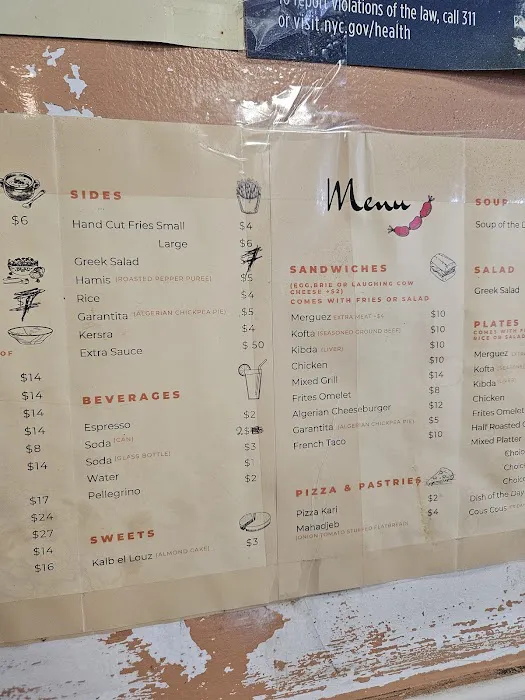 To report violations of the law, call 311
or visit nyc.gov/health
$6
OF
$14
$14
$14
$14
$8
$14
$17
$24
$27
$14
$16
SIDES
Hand Cut Fries Small $4
Large $6
Greek Salad
Hamis (ROASTED PEPPER PUREE) $5
Rice $4
Garantita (ALGERIAN CHICKPEA PIE) $5
Kersra $4
Extra Sauce $ 50
BEVERAGES
Espresso $2
Soda (CAN)
Soda (GLASS BOTTLE) $3
Water $1
Pellegrino $2
SWEETS
Kalb el Louz (ALMOND CAKE) $3
Menu
SANDWICHES
(EGG,BRIE OR LAUGHING COW
CHEESE +$2)
COMES WITH FRIES OR SALAD
Merguez EXTRA MEAT +$4 $10
Kofta (SEASONED GROUND BEEF) $10
Kibda (LIVER) $10
Chicken $10
Mixed Grill $14
Frites Omelet $8
Algerian Cheeseburger $12
Garantita (ALGERIAN CHICKPEA PIE) $5
French Taco $10
PIZZA & PASTRIES
Pizza Kari $2
Mahadjeb $4
(ONION TOMATO STUFFED FLATBREAD)
SOUP
Soup of the D
SALAD
Greek Salad
PLATES
COMES WITH F
RICE OR SALAD
Merguez
Kofta
Kibda
Chicken
Frites Omelet
Half Roasted C
Mixed Platter
Choic
Choic
Choic
Dish of the Day
Cous Cous